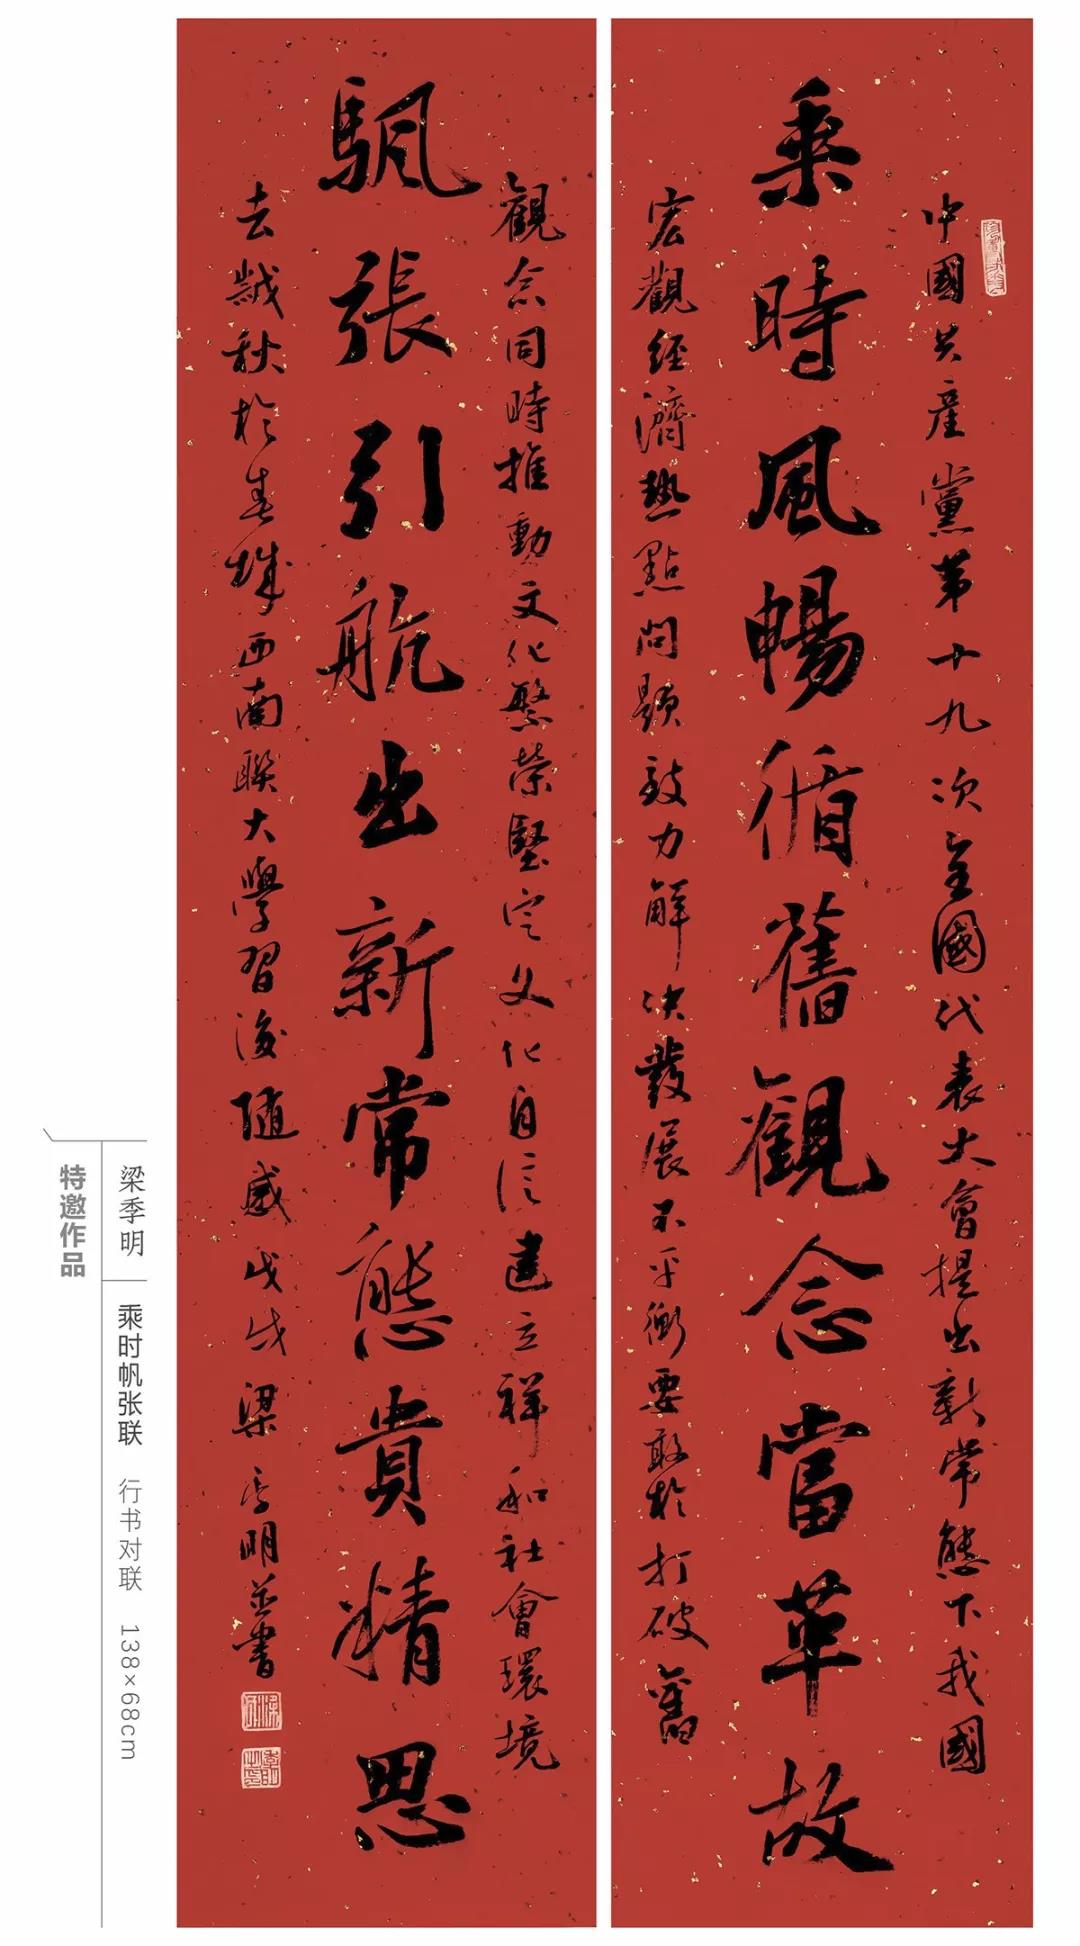 中國共產黨第十九次全國代表大會提出新常態下我國
乘時風暢循舊觀念當革故
宏觀經濟熱點問題致力解決發展不平衡要敢於打破舊
觀念同時推動文化繁榮堅定文化自信建立祥和社會環境
颿張引航出新常態貴精思
去歲秋於春城西南聯大學習後隨感戊戌梁季明並書
梁季明 乘时帆张联 行书对联 138×68cm
特邀作品